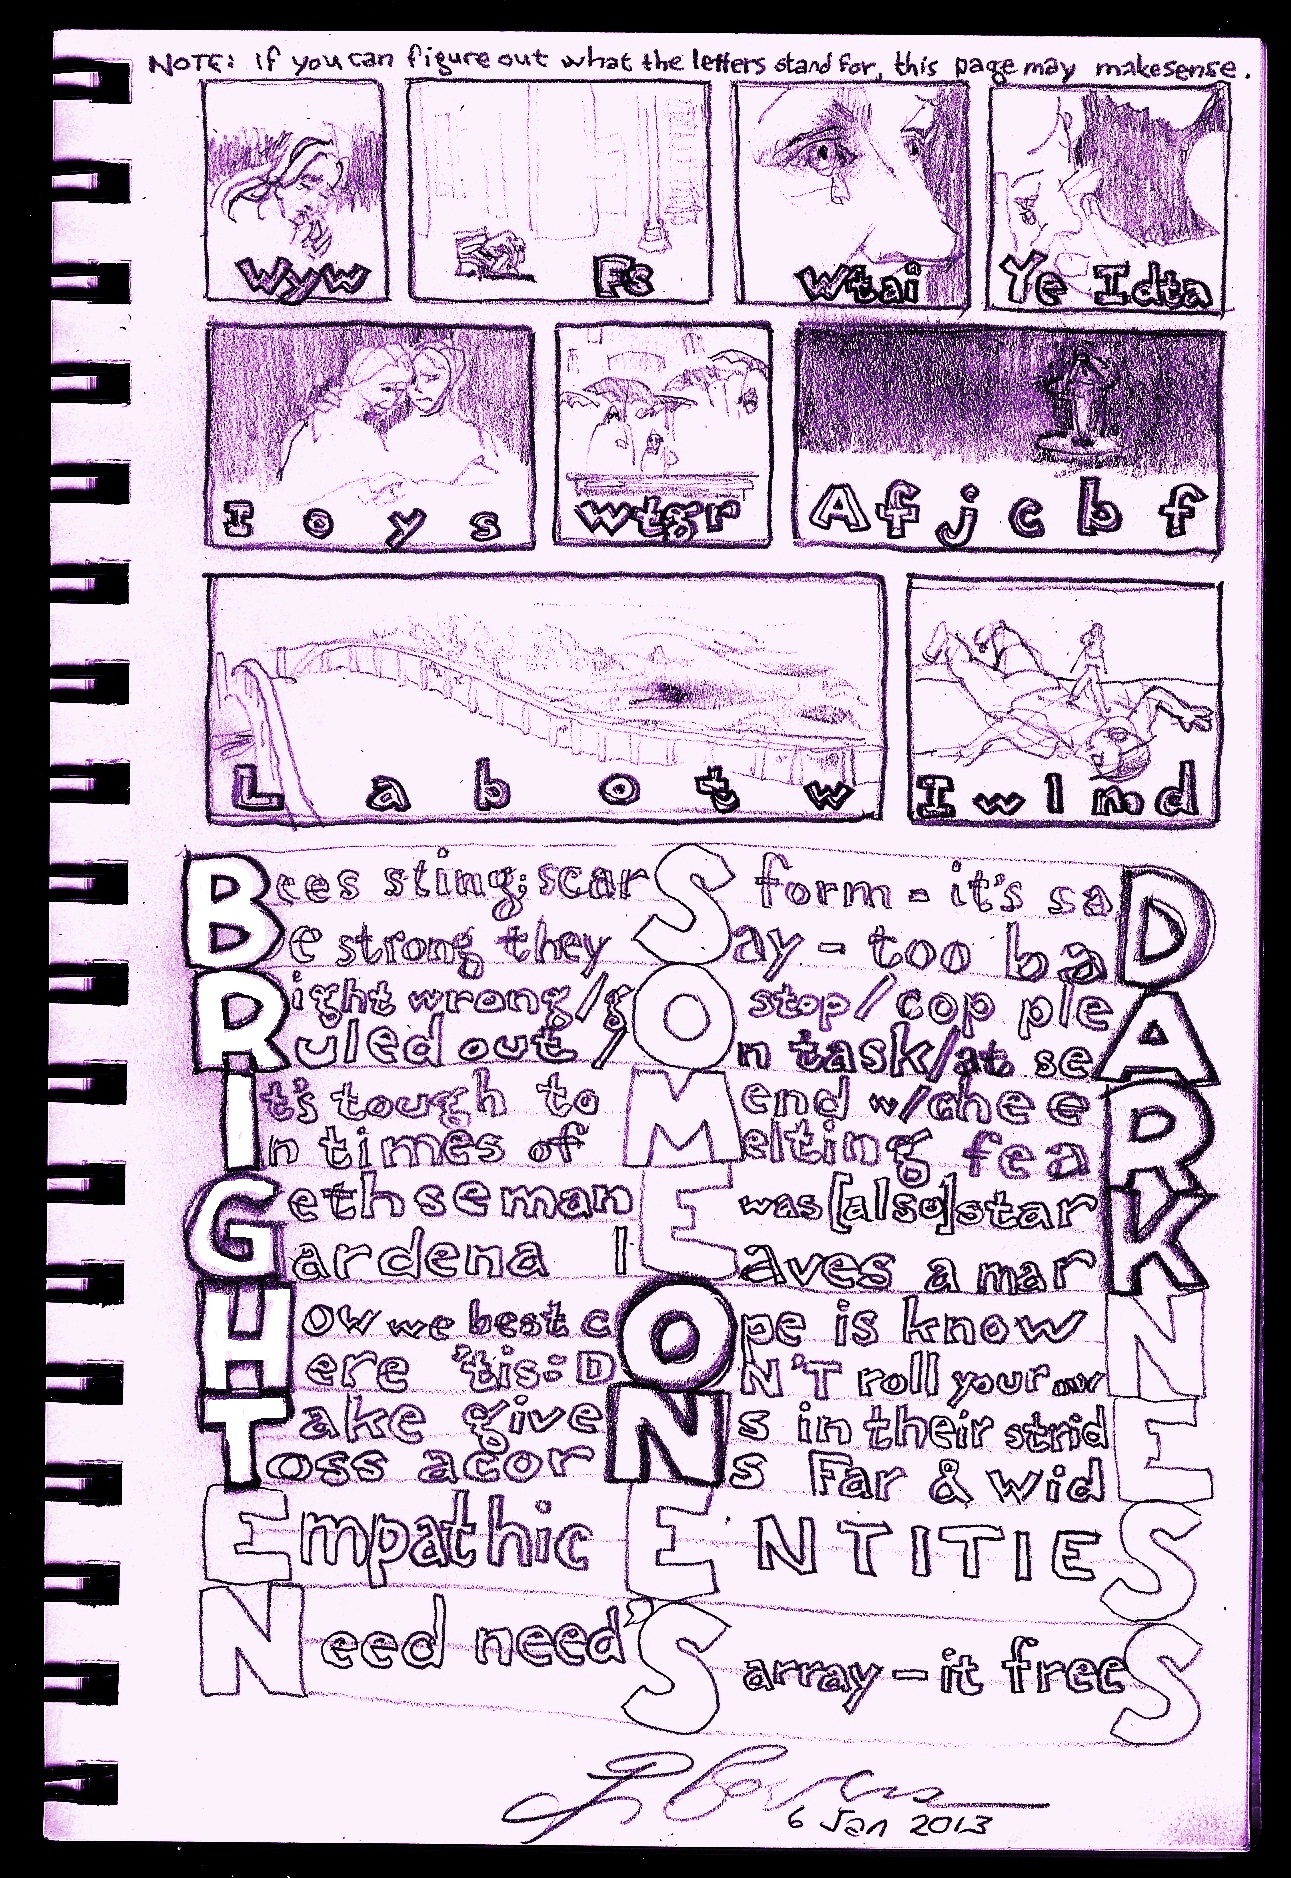 NOTE: if you can figure out what the letters stand for, this page may make sense.
Wyw
Fs
Wtai
Ye Idta
I o y s
Wtgr
A f j c b f
L a b o t w
I w l m d
Bees sting; scarS form - it's saD
Be strong they Say - too baD
Right wrong/gO stop/cop pleA
Ruled out /On task/at seA
It's tough to Mend w/cheeR
In times of Melting feaR
GethsemanE was [also] starK
Gardena lEaves a marK
How we best cOpe is knowN
Here 'tis: DON'T roll your owN
Take giveNs in their stridE
Toss acorNs Far & widE
Empathic ENTITIES
Need need'S array - it freeS
6 Jan 2013